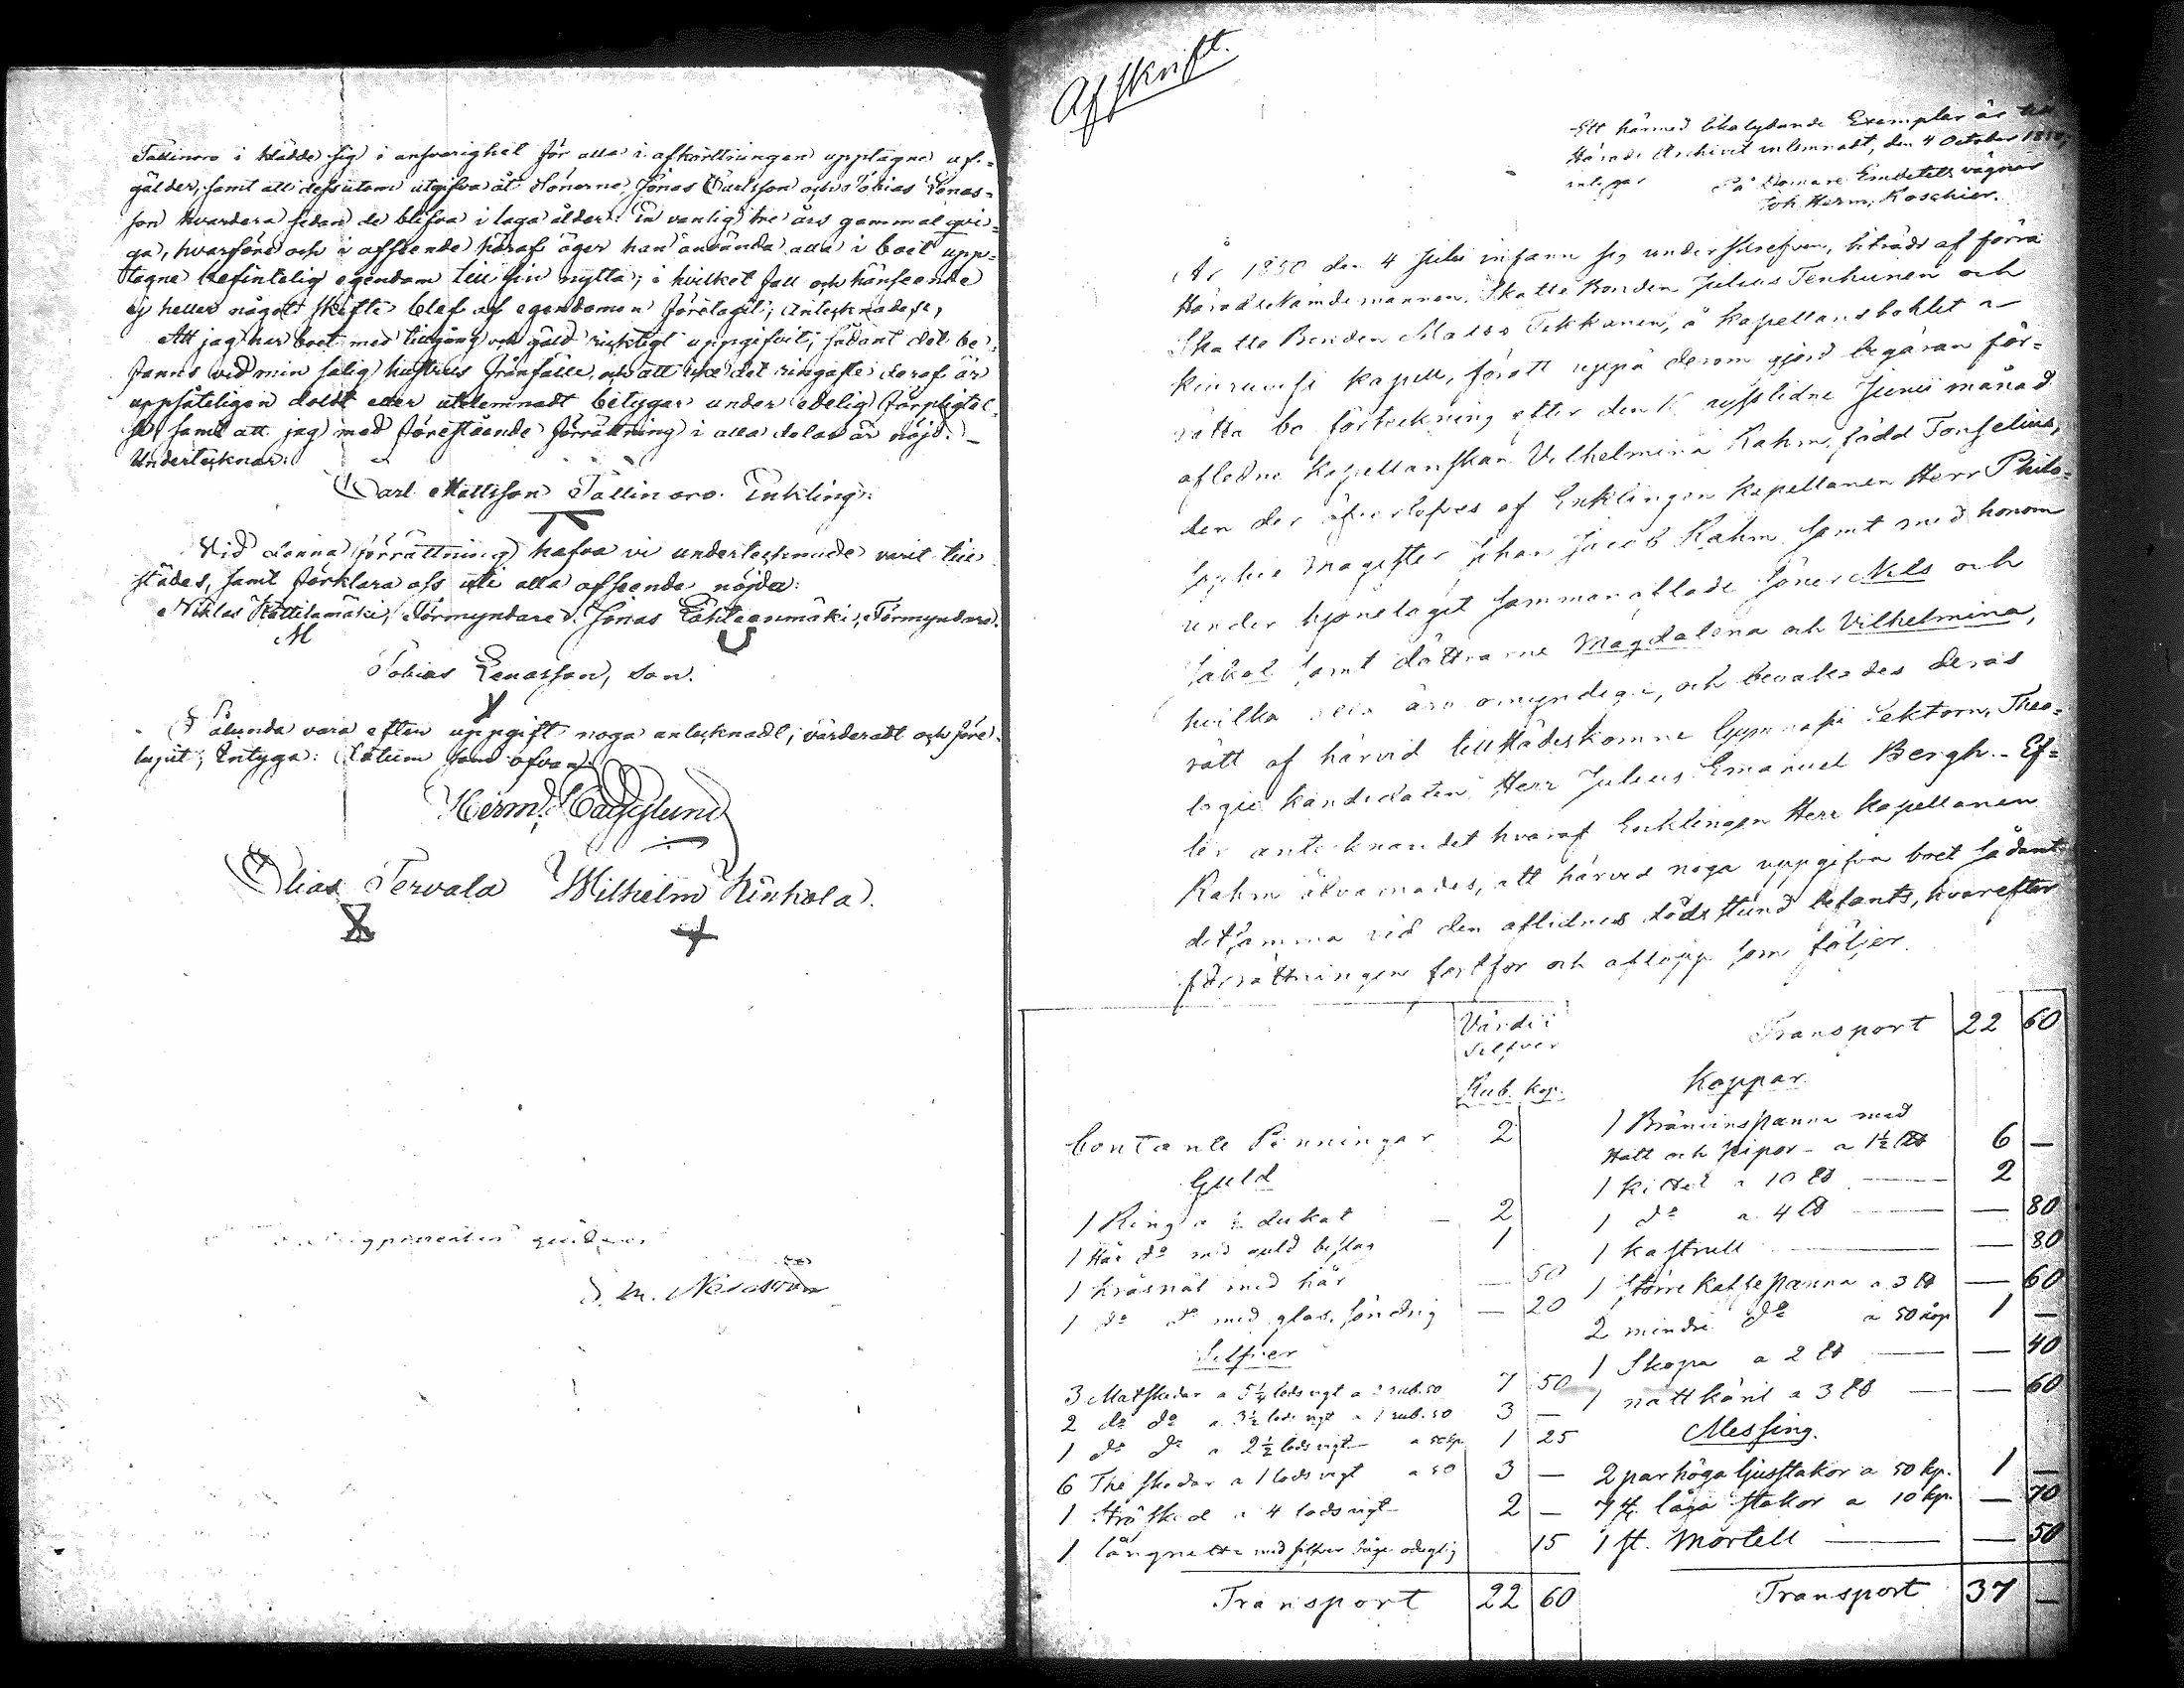 Tallinoro i klädde sig i ansvarighet för alla i afkortningen upptagne ut-
gälder, samt att dessutom utgifva åt Sönerne Jonas Carlsson och Tobias Lenas-
son hvardera sedan de blifva i laga ålder: En vanlig tre års gammal qvi-
ga, hvarföre och i afseende häraf äger han använda alla i boet upp-
tagne befintelig egendom till sin nytta; i hvilket fall och hänseende
ej heller något skifte blef af egendomen företaget; antecknades,
Att jag har boet med tillgång och gäld riktigt uppgifvit; sådant det be-
fanns vid min salig hustrus frånfälle, och att icke det ringaste deraf är
uppsåteligen doldt eller utelemnadt betygar under edelig förpligtel-
se, samt att jag med förestående förrättning i alla delar är nöjd. –
Undertecknar:
Carl Mattsson Tallinoro. Enkling.
Vid denna förrättning hafva vi undertecknade varit till
städes, samt förklara oss uti alla afseende nöjda:
Niklas Kattilamäki, Förmyndare. Jonas Förmyndare.
M
Tobias Lenasson, Son.
Sålunda vara efter uppgift noga antecknadt, värderadt och före
lupit; Intyga: Datum som ofvan.
Herm: Hägglund
Elias Tervala Wilhelm Kinhola.
Afskrift.
Ett härmed likalydande Exemplar är till
Härads Archivet inlemnadt, den 4 October 1850,
intygar På Domare Embetets vägnar
Joh. Herm. Roschier.
År 1850 den 4 Julii infann sig underskrefven, biträdd af förra
Häradsnämdemannen, Skatte Bonden Julius Tenhunen och
Skatte Bonden Matts Tikkanen, å kapellansbohlet
kiuruvesi kapell, för att uppå derom gjord begäran för-
rätta bo förteckning efter den sisslidne Junii månad
afledne kapellanskan Vilhelmina Rahm, född Tonselius,
den der öfverlefves af Enklingen kapellanen Herr Philo-
sophie Magister Johan Jacob Rahm samt med honom
under hjonelaget sammanaflade söner Nils och
Jakob samt döttrarne Magdalena och Vilhelmina,
hvilka alla äro omyndige, och bevakades deras
rätt af härvid tillstädeskomne Gymnasii Lektorn, Theo-
logie kandidaten Herr Julius Emanuel Bergh. – Ef-
ter antecknandet hvaraf Enklingen Herr kapellanen
Rahm åtvarnades, att härvid noga uppgifva boet sådant
detsamma vid den aflidnes dödsstund befants, hvarefter
förrättningen fortfor och aflopp som följer.
Värde i
Silfver
Rub. kop.
Contante Penningar 2
Guld
1 Ring a ½ dukat — 2
1 Hår do med guld beslag 1
1 kråsnål med hår — 50
1 do do med glas, söndrig — 20
Silfver
3 Matskedar a 5¼ lods vigt a 2 rub. 50 7 50
2 do do a 3½ lods vigt a 1 rub. 50 3 —
1 do do a 2½ lods vigt a 50 kp 1 25
6 The skedar a 1 lods vigt a 50 3 —
1 Strösked a 4 lods vigt 2 —
1 med silfver 15
Transport 22 60
Transport 22 60
Koppar
1 Bränvinspanna med
Hatt och pipor – a 1½ L℔ 6 —
1 kittel a 10 ℔ — 2
1 do a 4 ℔ — — 80
1 kastrull — — 80
1 större kaffepanna a 3 ℔ — 60
2 mindre do a 50 kop 1 —
1 Skopa a 2 ℔ — — 40
1 nattkäril a 3 ℔ — — 60
Messing.
2 par höga ljusstakor a 50 kp. 1 —
7 st. låga stakor a 10 kp. — 70
1 st. Mortell — — 50
Transport 37 —